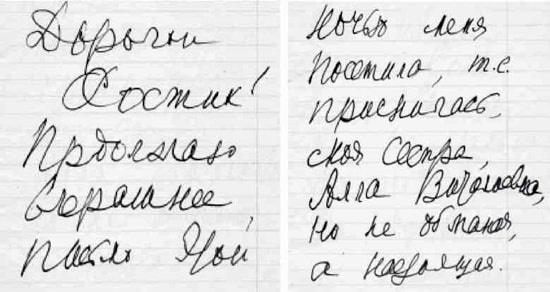 Дорогой
Костик!
Продолжаю
вчерашнее
письмо
Ночью меня
Посетила, т.е.
приснилась,
моя Сестра,
Алла Витальевна,
Но не обманная,
а настоящая.